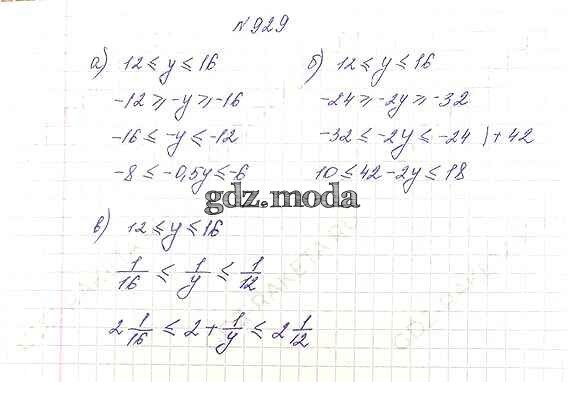 №929
а) 12 ≤ y ≤ 16
-12 ≥ -y ≥ -16
-16 ≤ -y ≤ -12
-8 ≤ -0,5y ≤ -6
б) 12 ≤ y ≤ 16
-24 ≥ -2y ≥ -32
-32 ≤ -2y ≤ -24 | + 42
10 ≤ 42 - 2y ≤ 18
gdz.moda
в) 12 ≤ y ≤ 16
1/16 ≤ 1/y ≤ 1/12
2 1/16 ≤ 2 + 1/y ≤ 2 1/12